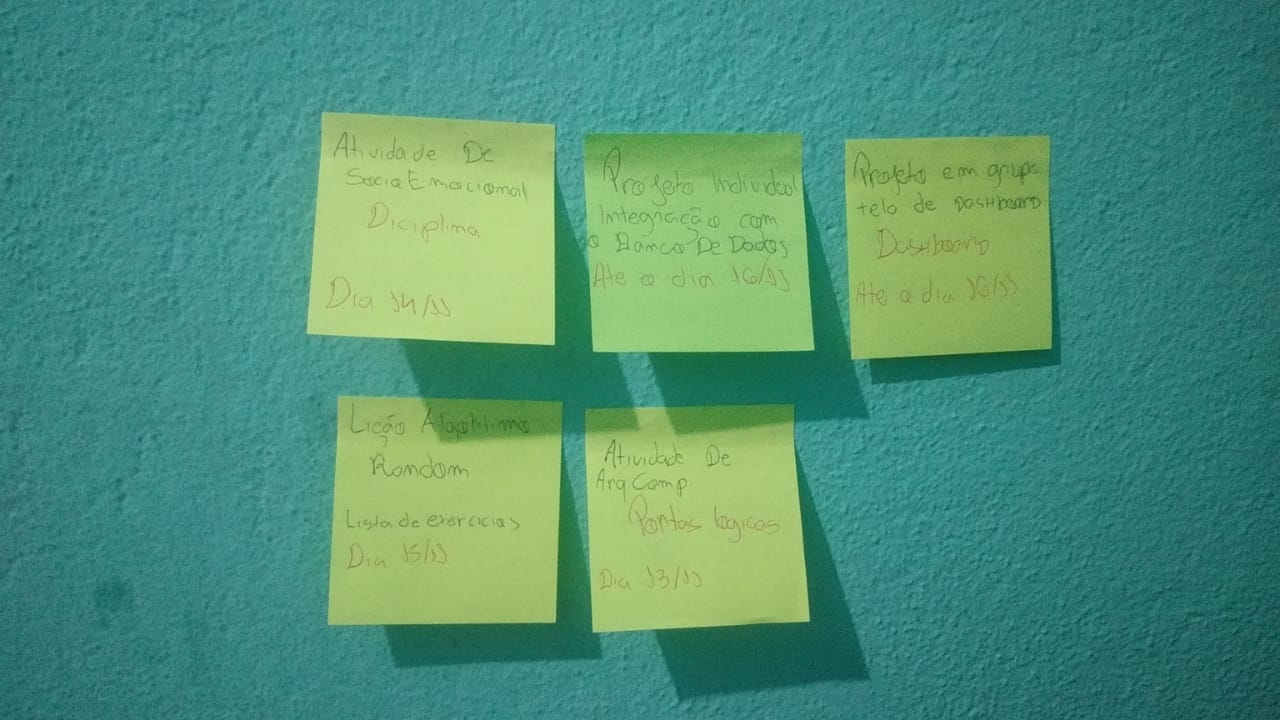 Atividade De
SocioEmocional
Diciplina
Dia 14/11
Projeto Individual
Integração com
o Banco De Dados
Ate o dia 16/11
Projeto em grupo
tela de DASHboard
DasHboard
Ate o dia 16/11
Lição Algoritimo
Random
Lista de exercicios
Dia 15/11
Atividade De
Arq Comp.
Portas logicas
Dia 13/11